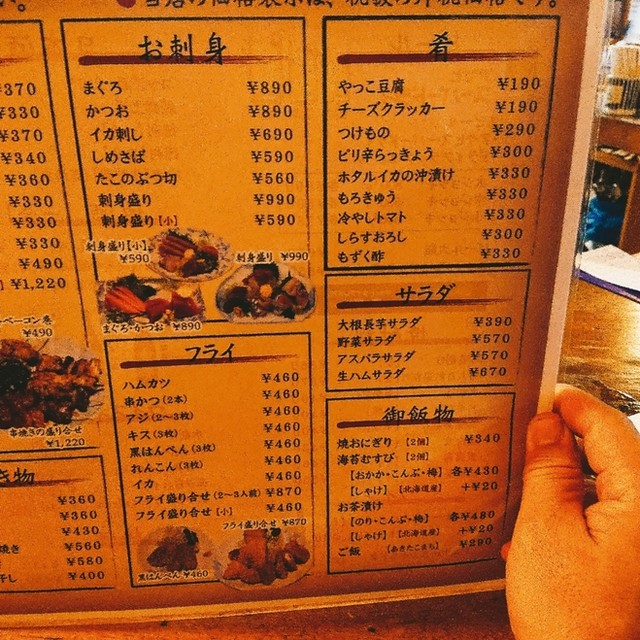 当店の価格表示は、税抜の外税価格です。
¥370
¥330
¥370
¥340
¥360
¥330
¥330
¥330
¥490
¥1,220
ベーコン巻
¥490
串焼きの盛り合せ
¥1,220
き物
¥360
¥360
¥430
焼き ¥560
¥580
干し ¥400
お刺身
まぐろ ¥890
かつお ¥890
イカ刺し ¥690
しめさば ¥590
たこのぶつ切 ¥560
刺身盛り ¥990
刺身盛り【小】 ¥590
刺身盛り【小】
¥590
刺身盛り ¥990
まぐろ・かつお ¥890
フライ
ハムカツ ¥460
串かつ(2本) ¥460
アジ(2〜3枚) ¥460
キス(3枚) ¥460
黒はんぺん(3枚) ¥460
れんこん(3枚) ¥460
イカ ¥460
フライ盛り合せ(2〜3人前) ¥870
フライ盛り合せ【小】 ¥460
フライ盛り合せ ¥870
黒はんぺん ¥460
肴
やっこ豆腐 ¥190
チーズクラッカー ¥190
つけもの ¥290
ピリ辛らっきょう ¥300
ホタルイカの沖漬け ¥330
もろきゅう ¥330
冷やしトマト ¥330
しらすおろし ¥300
もずく酢 ¥330
サラダ
大根長芋サラダ ¥390
野菜サラダ ¥570
アスパラサラダ ¥570
生ハムサラダ ¥670
御飯物
焼おにぎり【2個】 ¥340
海苔むすび【2個】
【おかか・こんぶ・梅】 各¥430
【しゃけ】【北海道産】 +¥20
お茶漬け
【のり・こんぶ・梅】 各¥480
【しゃけ】【北海道産】 +¥20
ご飯 【あきたこまち】 ¥290